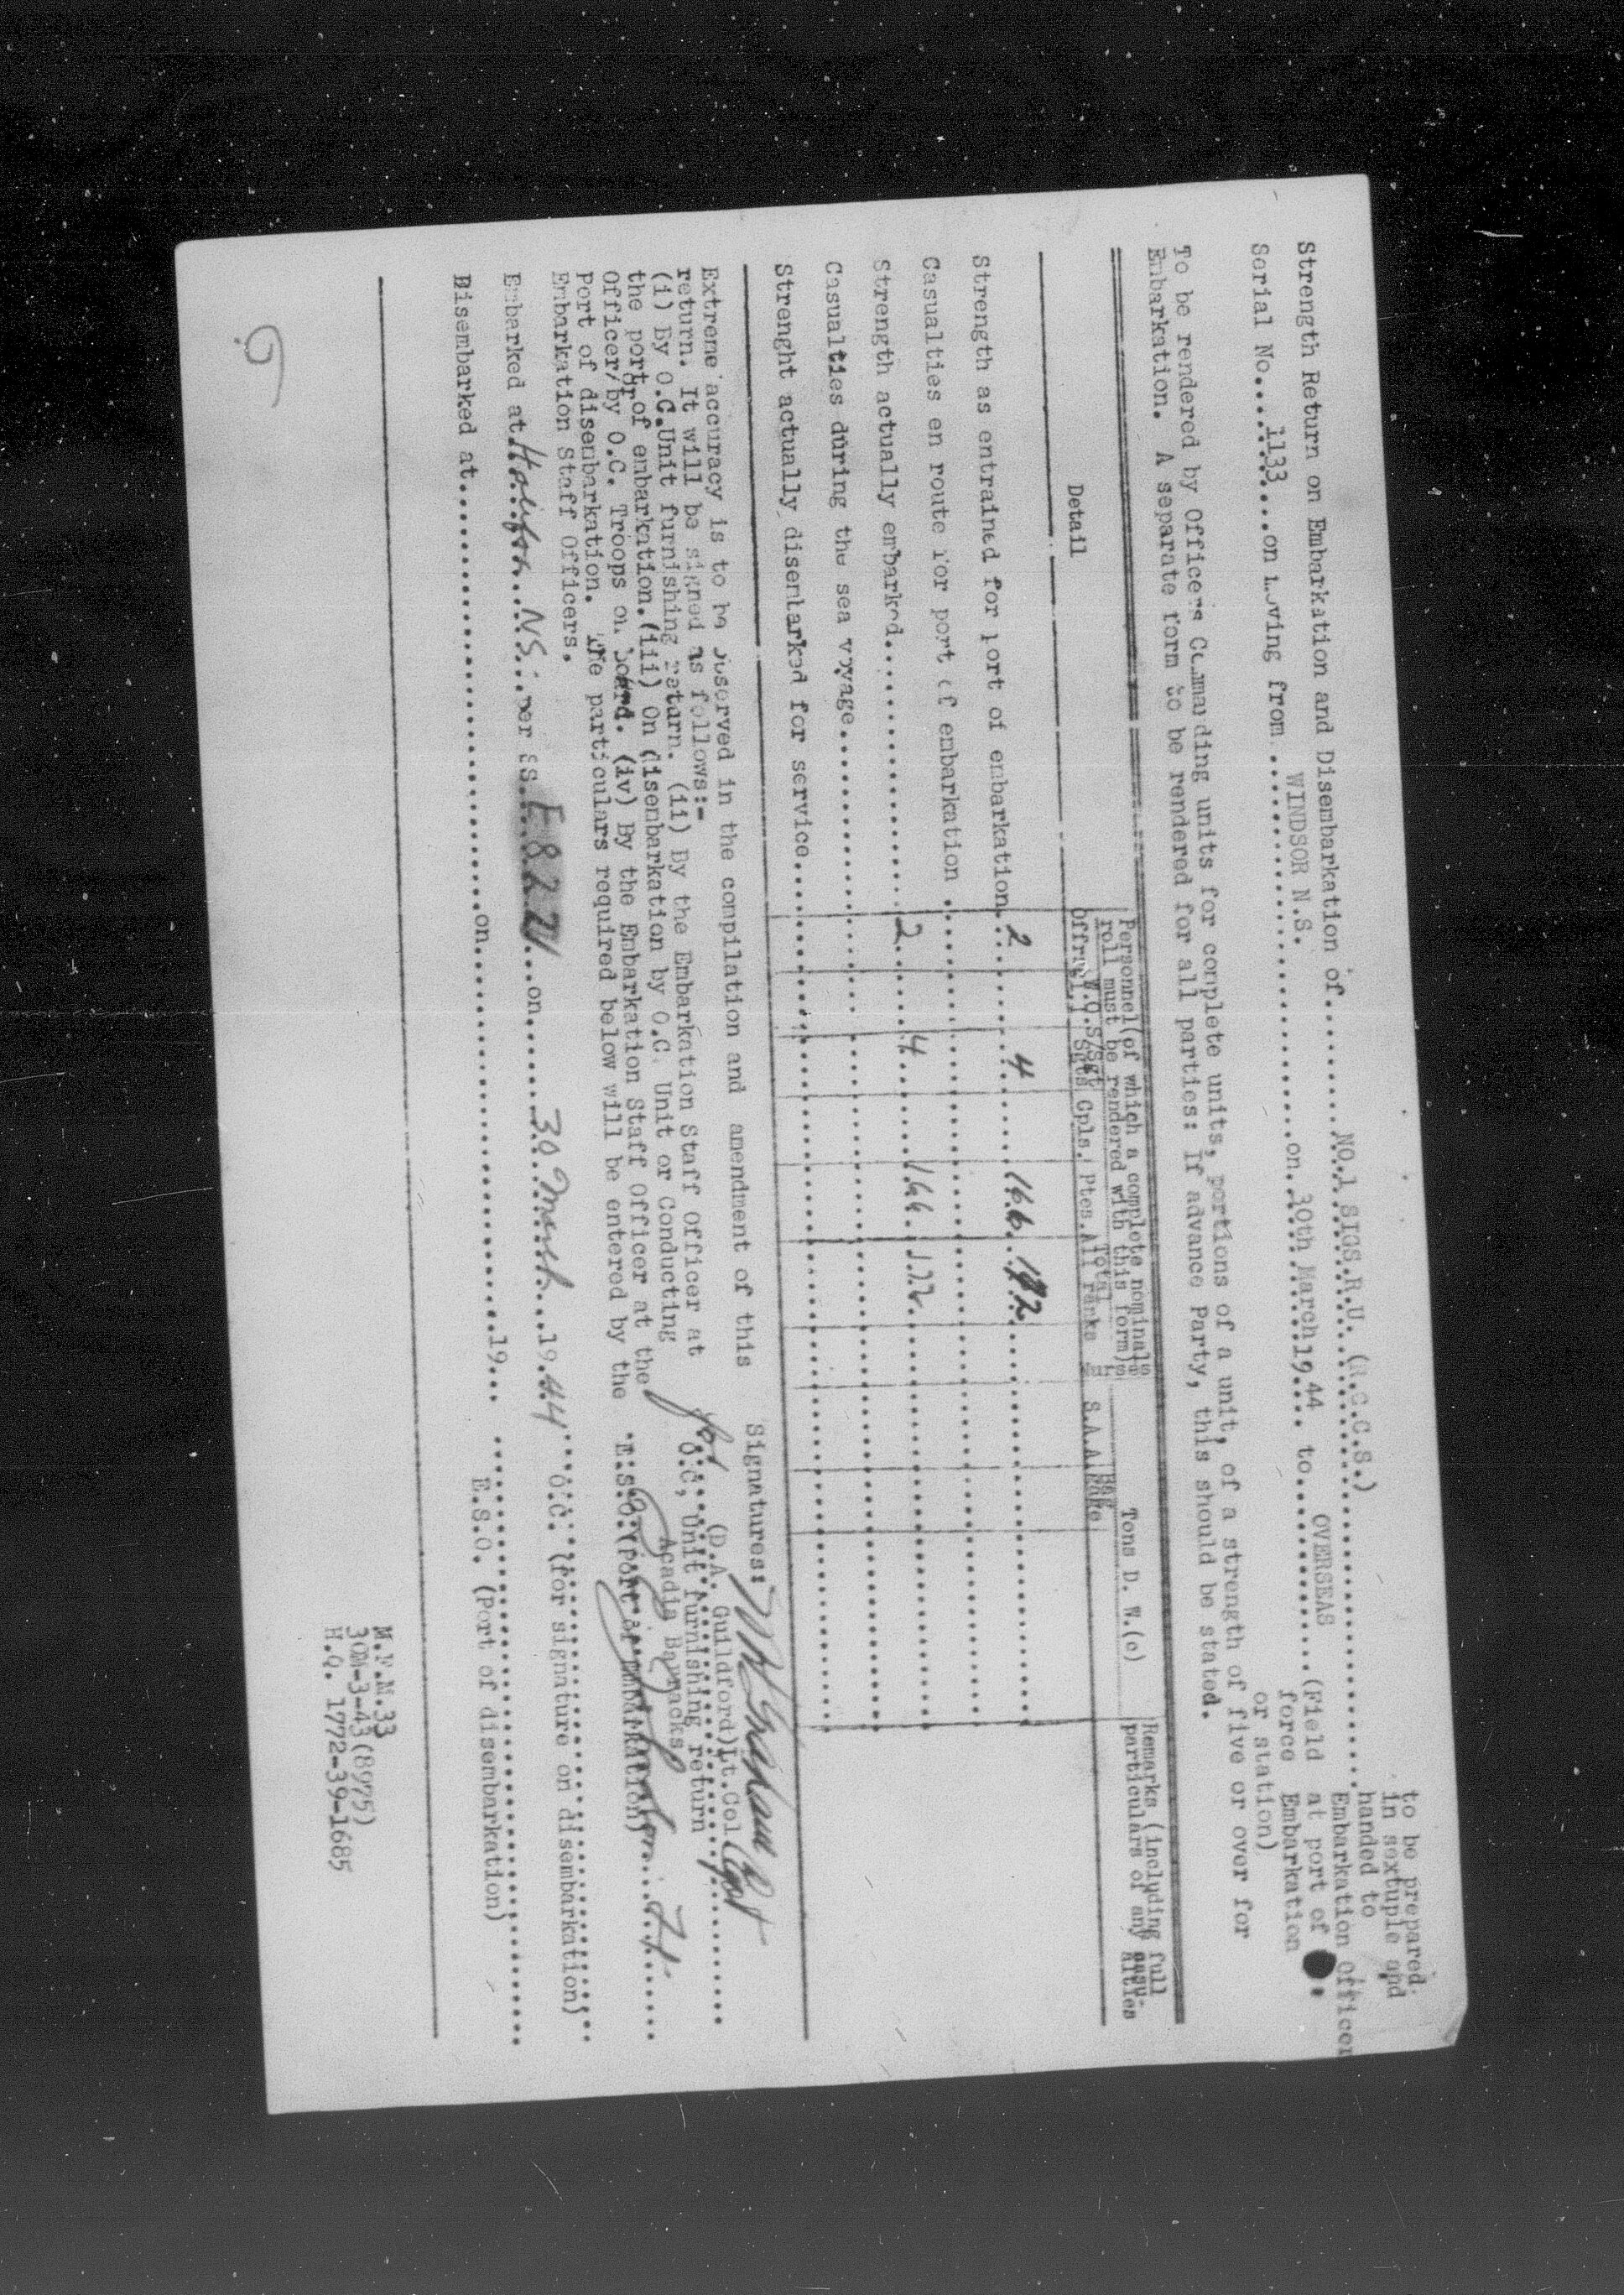 to be prepared
in sextuple and
handed to
Strength Return on Embarkation and Disembarkation of NO.1 SIGS.R.U. (R.C.C.S.) Embarkation officer
at port of
Serial No. 1133 on moving from WINDSOR N.S. on 30th March 1944 to OVERSEAS (Field force Embarkation
or station)
To be rendered by Officers Commanding units for complete units, portions of a unit, of a strength of five or over for
Embarkation. A separate form to be rendered for all parties: if advance Party, this should be stated.
Detail
Personnel (of which a complete nominal
roll must be rendered with this form)
Offrs W.O. S/Sgt Sgts Cpls. Ptes. Total All ranks
S.A.A. Bag
Tons D. W.(c)
Remarks (including full
particulars of any casu-
alties
Strength as entrained for port of embarkation. 2 4 166 172
Casualties en route for port of embarkation
Strength actually embarked 2 4 166 172
Casualties during the sea voyage
Strenght actually disembarked for service
Extreme accuracy is to be observed in the compilation and amendment of this
return. It will be signed as follows:-
(i) By O.C.Unit furnishing return. (ii) By the Embarkation Staff Officer at
the port of embarkation. (iii) On disembarkation by O.C. Unit or Conducting
Officer/or by O.C. Troops on board. (iv) By the Embarkation Staff Officer at the
Port of disembarkation. The particulars required below will be entered by the
Embarkation Staff Officers.
Signatures:
for (D.A. Guildford)Lt.Col
O.C, Unit furnishing return
Acadia Barracks
E.S.O. (Port of embarkation)
Embarked at Halifax NS. per SS. E822 on 30 March 1944
O.C. (for signature on disembarkation)
Disembarked at on 19
E.S.O. (Port of disembarkation)
M.F.M.33
30M-3-43(8975)
H.Q. 1772-39-1685